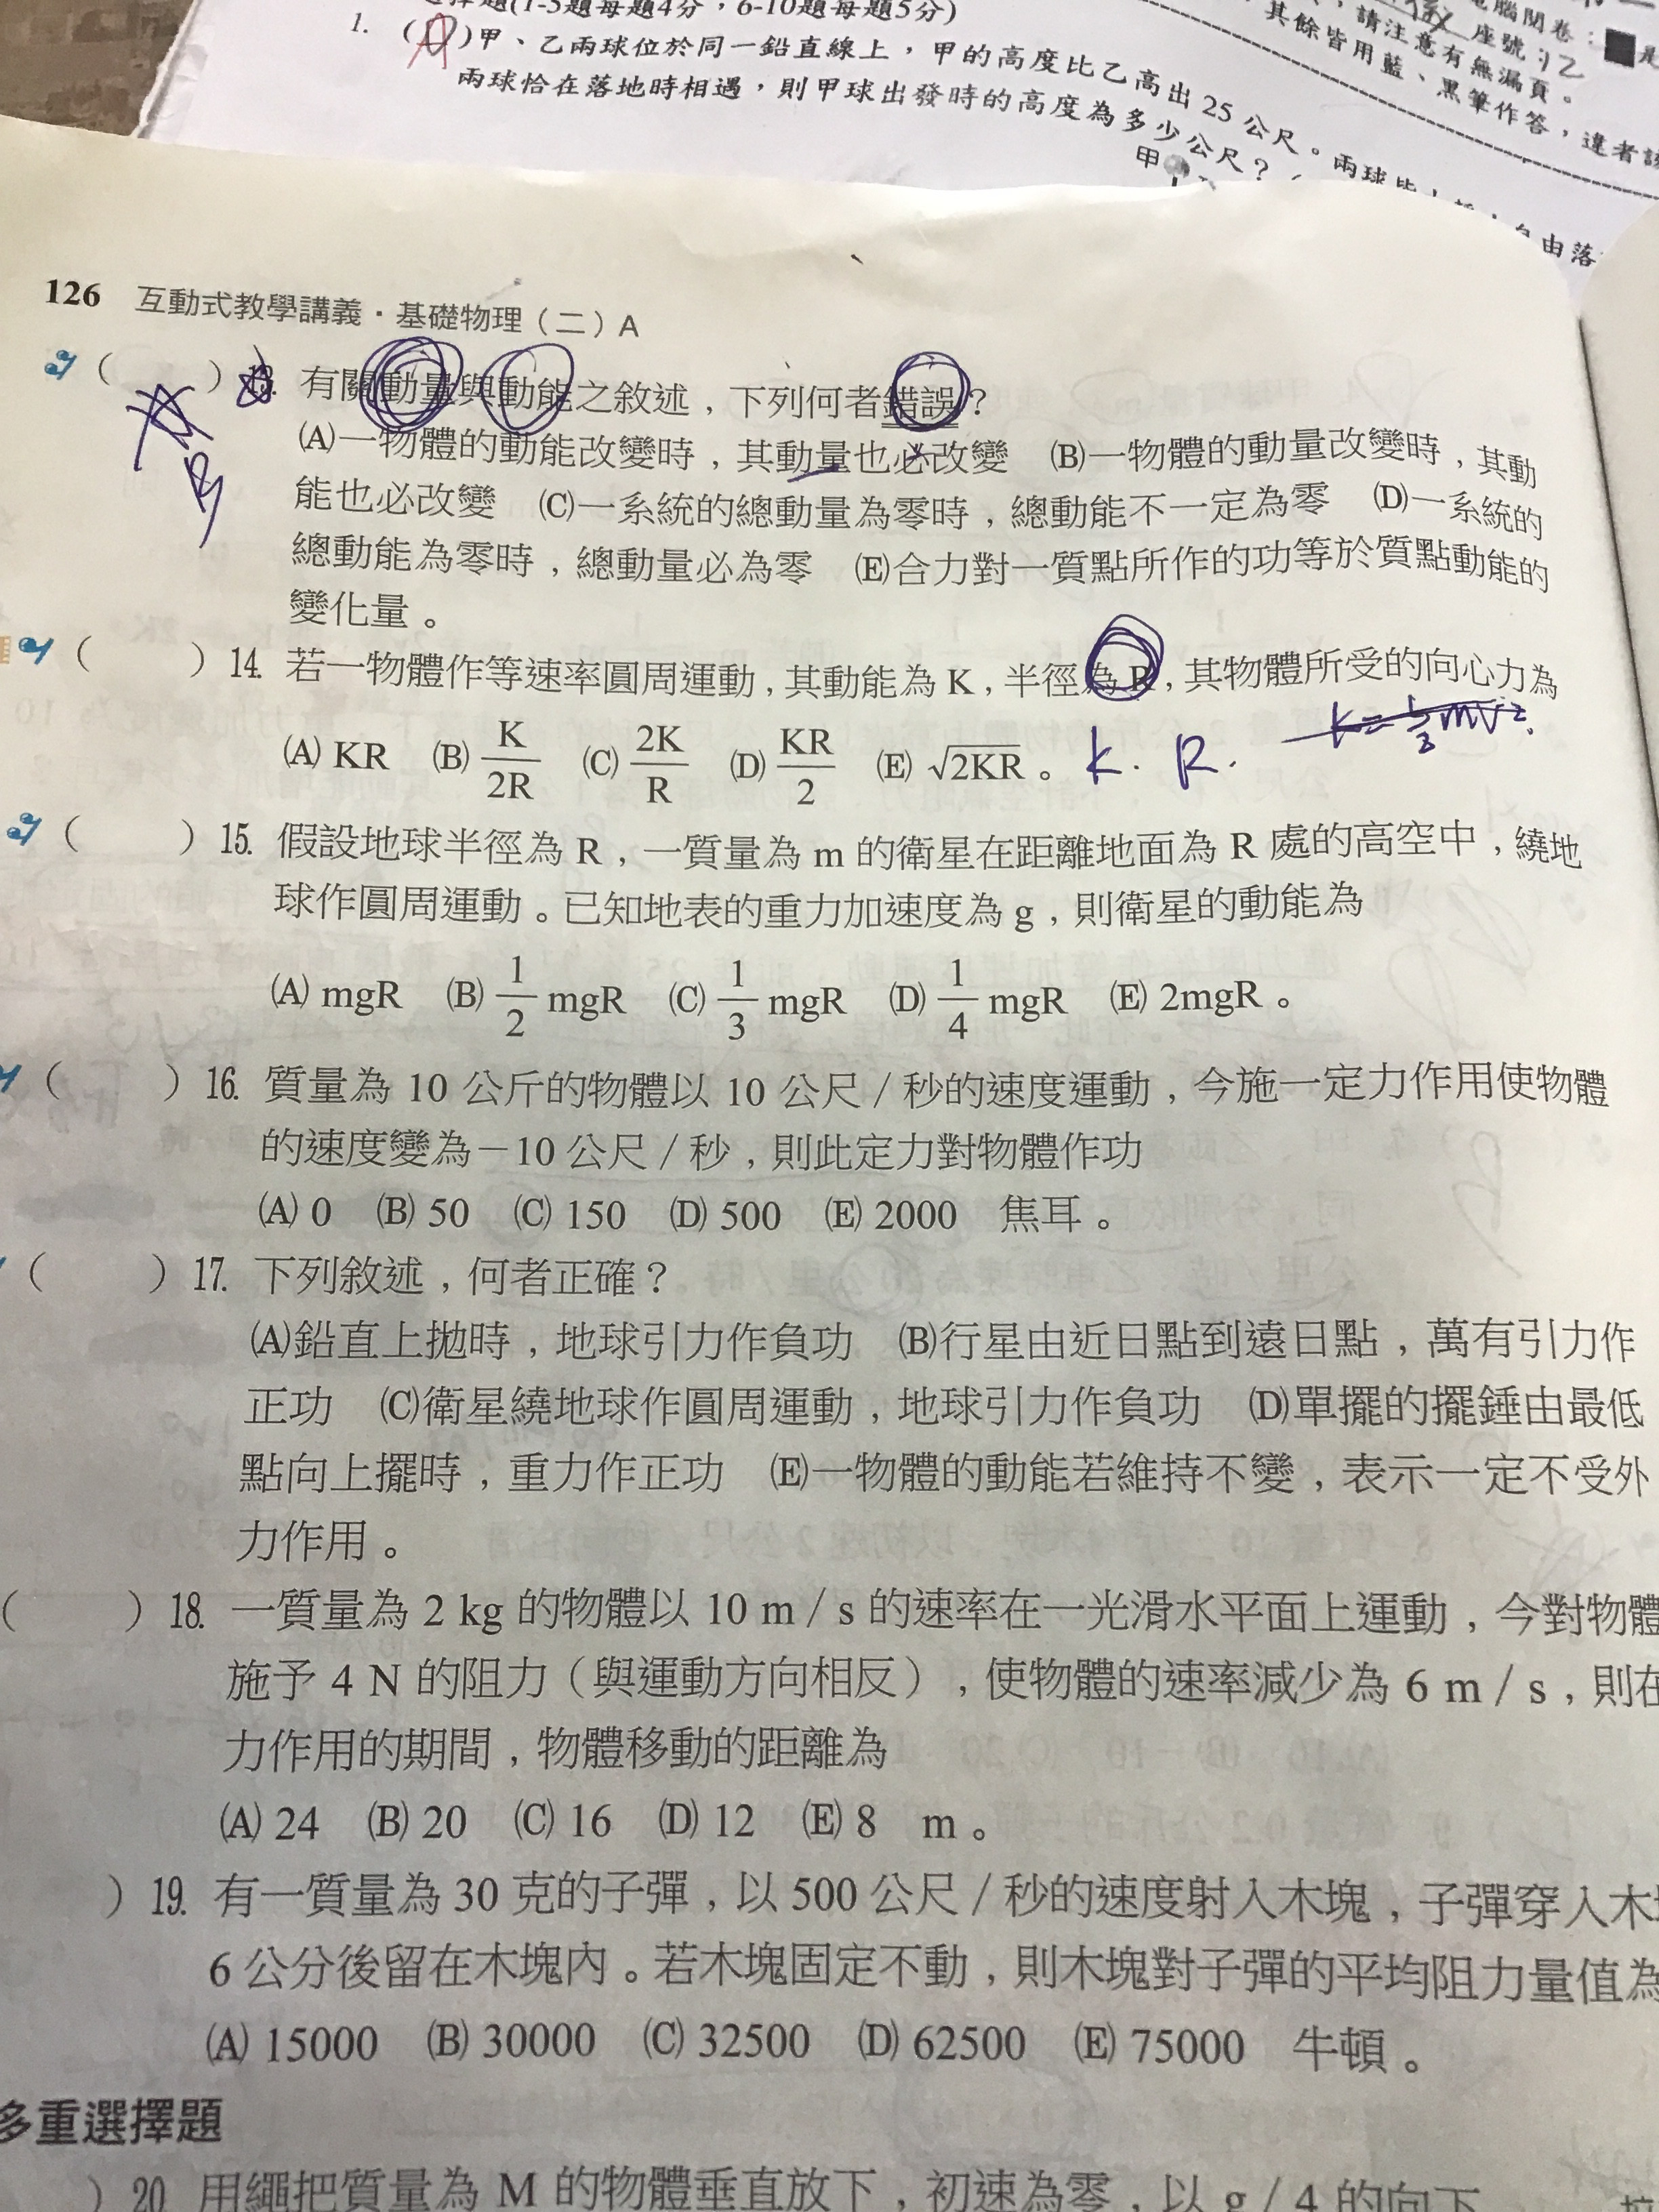 擇題(1-5題每題4分，6-10題每題5分)
1. (A)甲、乙兩球位於同一鉛直線上，甲的高度比乙高出 25 公尺。兩球皆
兩球恰在落地時相遇，則甲球出發時的高度為多少公尺？
甲
由落
電腦閱卷：■是
座號
，請注意有無漏頁。
其餘皆用藍、黑筆作答，違者該
126 互動式教學講義・基礎物理（二）A
( ) 13. 有關動量與動能之敘述，下列何者錯誤？
(A)一物體的動能改變時，其動量也必改變 (B)一物體的動量改變時，其動
能也必改變 (C)一系統的總動量為零時，總動能不一定為零 (D)一系統的
總動能為零時，總動量必為零 (E)合力對一質點所作的功等於質點動能的
變化量。
B
( ) 14. 若一物體作等速率圓周運動，其動能為 K，半徑為 R，其物體所受的向心力為
K=½mv²
(A) KR (B) K/2R (C) 2K/R (D) KR/2 (E) √2KR。 K. R.
( ) 15. 假設地球半徑為 R，一質量為 m 的衛星在距離地面為 R 處的高空中，繞地
球作圓周運動。已知地表的重力加速度為 g，則衛星的動能為
(A) mgR (B) 1/2 mgR (C) 1/3 mgR (D) 1/4 mgR (E) 2mgR。
( ) 16. 質量為 10 公斤的物體以 10 公尺／秒的速度運動，今施一定力作用使物體
的速度變為－10 公尺／秒，則此定力對物體作功
(A) 0 (B) 50 (C) 150 (D) 500 (E) 2000 焦耳。
( ) 17. 下列敘述，何者正確？
(A)鉛直上拋時，地球引力作負功 (B)行星由近日點到遠日點，萬有引力作
正功 (C)衛星繞地球作圓周運動，地球引力作負功 (D)單擺的擺錘由最低
點向上擺時，重力作正功 (E)一物體的動能若維持不變，表示一定不受外
力作用。
( ) 18. 一質量為 2 kg 的物體以 10 m／s 的速率在一光滑水平面上運動，今對物體
施予 4 N 的阻力（與運動方向相反），使物體的速率減少為 6 m／s，則在
力作用的期間，物體移動的距離為
(A) 24 (B) 20 (C) 16 (D) 12 (E) 8 m。
) 19. 有一質量為 30 克的子彈，以 500 公尺／秒的速度射入木塊，子彈穿入木塊
6 公分後留在木塊內。若木塊固定不動，則木塊對子彈的平均阻力量值為
(A) 15000 (B) 30000 (C) 32500 (D) 62500 (E) 75000 牛頓。
多重選擇題
) 20. 用繩把質量為 M 的物體垂直放下，初速為零，以 g／4 的向下